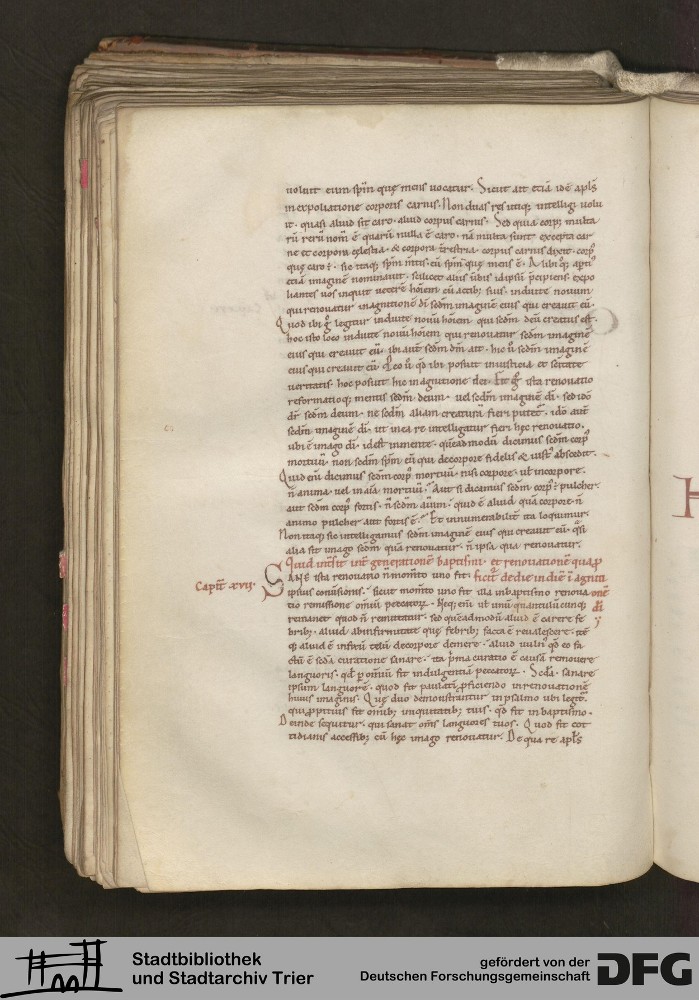 uoluit eum spm̄ quę mens uocatur. Sicut ait etiā idē apl̄s
in expoliatione corporis carnis. Non duas res utiq; intelligi uolu
it. quasi aliud sit caro. aliud corpus carnis. Sed quia corp; multa
rū rerū nom̄ ē quarū nulla ē caro. nā multa sunt excepta car
ne et corpora cęlestia. & corpora t̄restria. corpus carnis dixit. corp;
quę caro ē. sic itaq; spm̄ m̄tis. eū spm̄ quę mens ē. Alibi q; apti'
etiā imaginē nominauit. scilicet aliis ūbis idipsū p̄cipiens. expo
liantes uos inquit ueterē hoīem cū actib; suis. induite nouum
qui renouatur in agnitionē dī sedm̄ imaginē eius qui creauit eū.
Quod ibi g̊ legitur induite nouū hoīem qui sedm̄ deū creatus est.
hoc isto loco induite nouū hoīem qui renouatur sedm̄ imaginē
eius qui creauit eū. ibi aut̄ sedm̄ dm̄ ait. hic ū sedm̄ imaginē
eius qui creauit eū. P̱eo ū qd̄ ibi posuit in iusticia et sc̄itate
ueritatis. hoc posuit hic in agnitione dei. Fit g̊ ista renouatio
reformatioq; mentis sedm̄ deum. uel sedm̄ imaginē dī. sed ido
dr̄ sedm̄ deum. ne sedm̄ aliam creaturā fieri putet̄. ido aut̄
sedm̄ imaginē dī. ut in ea re intelligatur fieri hęc renouatio.
ubi ē imago dī. id est in mente. quēadmodū dicimus sedm̄ corp;
mortuū. non sedm̄ spm̄ eū qui de corpore fidelis & iust; abscedit.
Quid enī dicimus sedm̄ corp; mortuū. nisi corpore. ul̄ in corpore.
n̄ anima. uel in aīa mortuū. Aut si dicamus sedm̄ corp; pulcher.
aut sedm̄ corp; fortis. n̄ sedm̄ aīum. quid ē aliud quā corpore n̄
animo pulcher aut fortis ē. Et innumerabilit̄ ita loquimur.
Non itaq; sic intelligamus sedm̄ imaginē eius qui creauit eū. q̄si
alia sit imago sedm̄ quā renouatur. n̄ ipsa quę renouatur.
Quid int̄sit int̄ generationē baptismi. et renouationē quę p̱
Capitl̄ xvii.
SANE ista renouatio n̄ mom̄to uno fit. ficit̄ de die in diē ī agniti
ipsius conūsionis. sicut mom̄to uno fit illa in baptismo renoua onē
tio remissione omniū peccatorꝝ. Neq; enī ul̄ unū quantulūcunq; dī
remanet quod n̄ remittatur. sed quēadmodū aliud ē carere fe
brib;. aliud ab infirmitate quę febrib; facta ē reualescere. itē
q; aliud ē infixū telū de corpore demere. aliud uuln; qd̄ eo fa
ctū ē sedā curatione sanare. ita prima curatio ē causā remouere
languoris. qd̄ p̱ omniū fit indulgentiā peccatorꝝ. Scda. sanare
ipsum languorē. quod fit paulatī p̱ficiendo in renouationē
huius imaginis. Quę duo demonstrantur in psalmo ubi legit̄.
qui p̱pitius fit omīb; iniquitatib; tuis. qd̄ fit in baptismo.
Deinde sequitur. qui sanat om̄s languores tuos. Quod fit cot
tidianis accessib; cū hęc imago renouatur. De qua re apl̄s
Stadtbibliothek
und Stadtarchiv Trier
gefördert von der
Deutschen Forschungsgemeinschaft
DFG